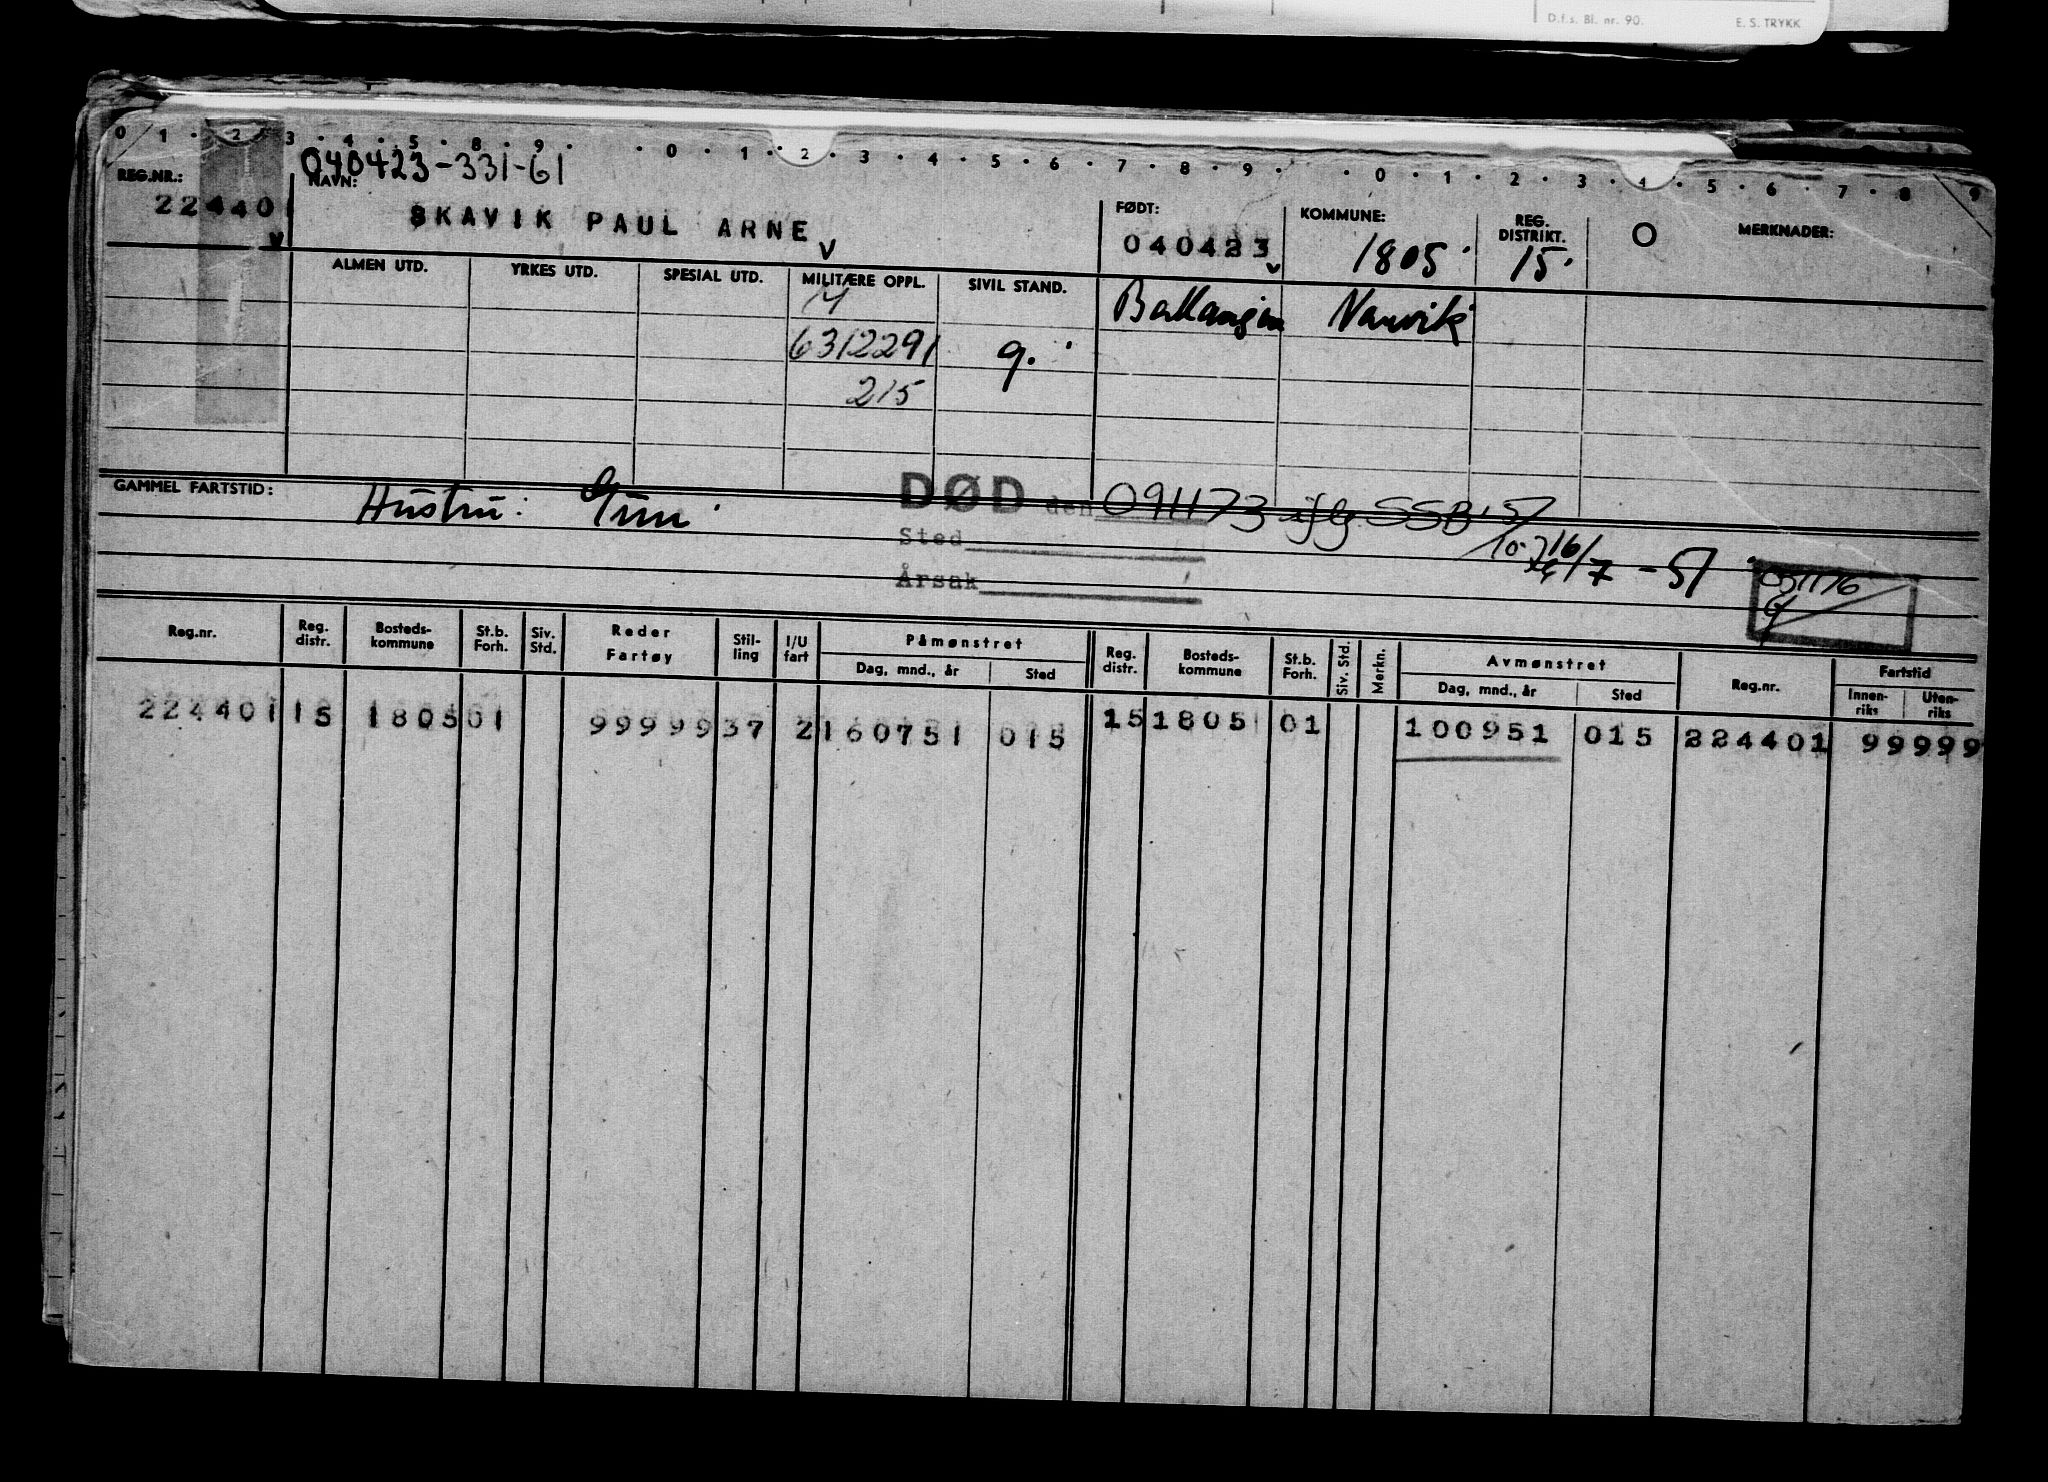 D.f.s. Bl. nr. 90. E. S. TRYKK
0 1 2 3 4 5 8 9 0 1 2 3 4 5 6 7 8 9 0 1 2 3 4 5 6 7 8 9
040423-331-61
REG.NR.: NAVN: FØDT: KOMMUNE: REG. DISTRIKT. O MERKNADER:
224401 SKAVIK PAUL ARNE 040423 1805 15
ALMEN UTD. YRKES UTD. SPESIAL UTD. MILITÆRE OPPL. SIVIL STAND.
M Ballangen Narvik
6312291 g.
215
GAMMEL FARTSTID: Hustru: DØD den 091173 iflg SSB
Sted
16/7 - 51
Årsak
Reg.nr. Reg. distr. Bosteds-kommune St.b. Forh. Siv. Std. Reder Fartøy Stil-ling I/U fart Påmønstret Reg. distr. Bosteds-kommune St.b. Forh. Siv. Std. Merkn. Avmønstret Reg.nr. Fartstid
Dag, mnd., år Sted Dag, mnd., år Sted Innen-riks Uten-riks
224401 15 1805 01 99999 37 2 160751 015 15 1805 01 100951 015 224401 99999